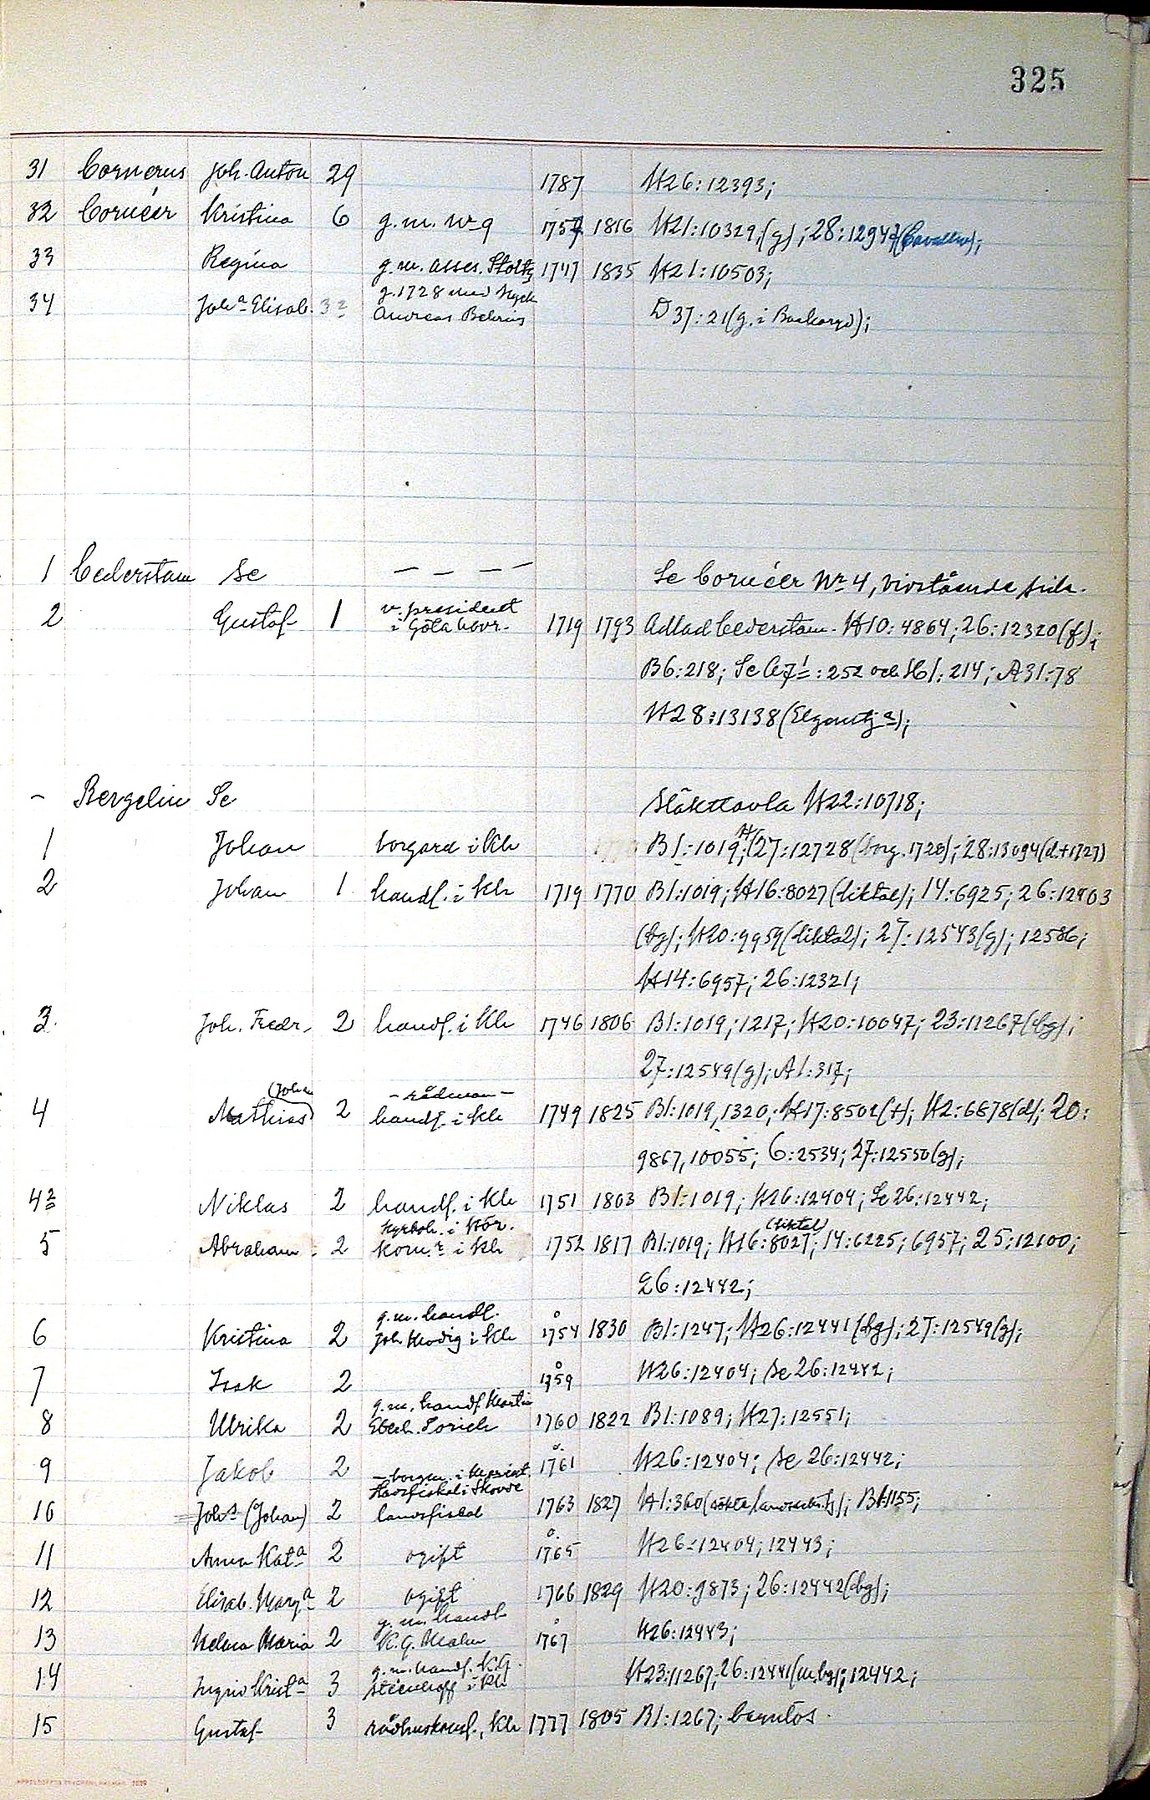 325
31 Cornerus Joh. Anton 29 1787 H26:12393;
32 Cornéer Kristina 6 g.m. No 9 1754 1816 H21:10329,(g); 28:12947(Cavallin);
33 Regina g.m. asses. Stoltz 1747 1835 H21:10503;
34 Joh:a Elisab. 32 g. 1728 med kyrk
Andreas Belrus D37:21(g. i Backaryd);
1 Cederstam Se — — — — Se Cornéer Nr 4, vidstående sida.
2 Gustaf 1 v. president
i Göta hovr. 1719 1793 Adlad Cederstam. H10:4864; 26:12320(f);
B6:218; Se A71:252 och H1:214; A31:78
H28:13138
- Bergelin Se Släkttavla H22:10718;
1 Johan borgare i Kh B1:1019; H(27:12728(borg. 1720); 28:13094(d.+1727)
2 Johan 1 handl. i Kh 1719 1770 B1:1019; H16:8027(liktal); 14:6925; 26:12403
(bg); H20:9959(liktal); 27:12543(g); 12586;
H14:6957; 26:12321;
3 Joh. Fredr. 2 handl. i Kh 1746 1806 B1:1019; 1217; H20:10047; 23:11267(bg);
27:12549(g); A1:317;
(Johan
4 Mathias) 2 - rådman -
handl. i Kh 1749 1825 B1:1019, 1320; H17:8502(t); H2:6878(d); 20:
9867, 10055; 6:2534; 27:12550(g);
42 Niklas 2 handl. i Kh 1751 1803 B1:1019; H26:12404; Se 26:12442;
5 Abraham 2 kyrkoh. i Hör.
kom:r i Kh 1752 1817 B1:1019; H16:8027 (liktal); 14:6225; 6957; 25:12100;
26:12442;
6 Kristina 2 g.m. handl.
Joh. Hodig i Kh 1754 1830 B1:1247; H26:12441(bg); 27:12549(g);
7 Isak 2 1759 H26:12404; se 26:12442;
8 Ulrika 2 g.m. handl. Martin
Eberh. Sorich 1760 1822 B1:1089; H27:12551;
9 Jakob 2 1761 H26:12404; se 26:12442;
10 Joh:s (Johan) 2 - borgm. i
Stadsfiskal i Skövde
landsfiskal 1763 1827 H1:360; B1:1155;
11 Anna Kat:a 2 ogift 1765 H26:12404; 12443;
12 Elisab. Marg:a 2 ogift 1766 1829 H20:9873; 26:12442(bg);
13 Helena Maria 2 g.m. handl
K.G. Malm 1767 H26:12443;
14 Ingrid Krist:a 3 g.m. handl. K.G.
Steenhoff i Kh H23:11267; 26:12441(m.bg); 12442;
15 Gustaf 3 rådhuskansl., Kh 1777 1805 B1:1267; barnlös.